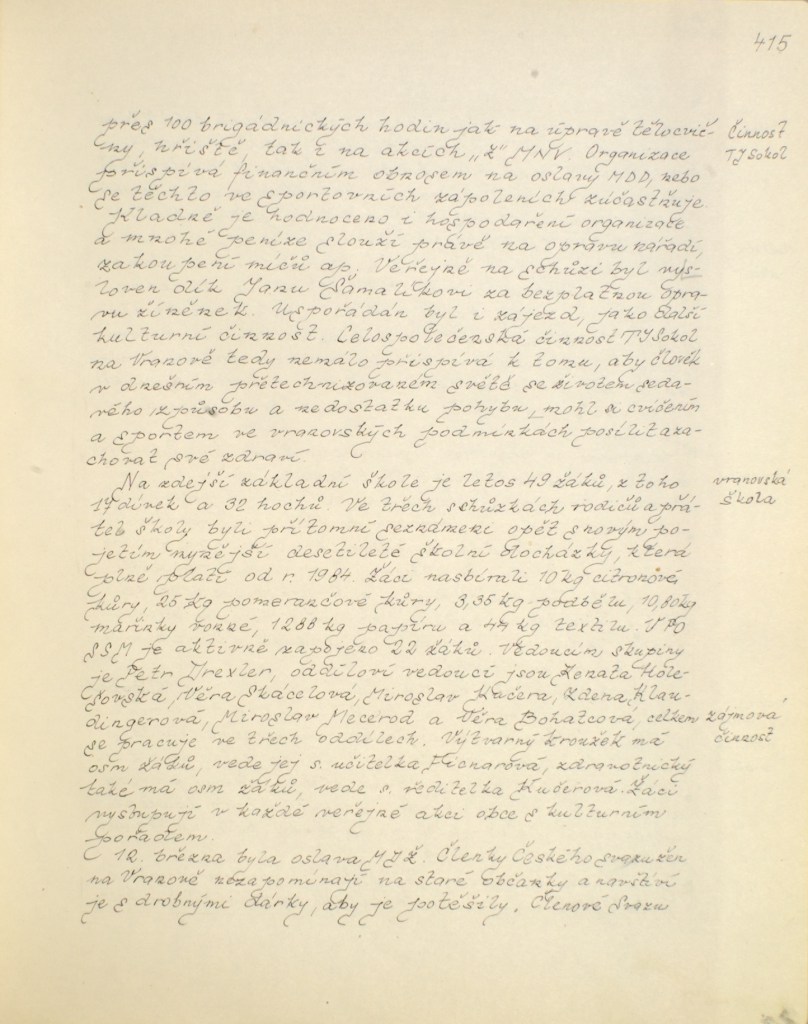 415
přes 100 brigádnických hodin jak na úpravě tělocvič-
ny, hřiště, tak i na akcích „Z" MNV. Organizace
přispívá finančním obnosem na oslavy MDD, nebo
se těchto ve sportovních zápoleních zúčastňuje.
Kladně je hodnoceno i hospodaření organizace
a mnohé peníze slouží právě na opravu nářadí,
zakoupení míčů ap. Veřejně na schůzi byl vys-
loven dík Janu Šamalíkovi za bezplatnou opra-
vu žíněnek. Uspořádán byl i zájezd, jako další
kulturní činnost. Celospolečenská činnost TJ Sokol
na Vranově tedy nemálo přispívá k tomu, aby člověk
v dnešním přetechnizovaném světě se životem seda-
vého způsobu a nedostatku pohybu, mohl si cvičením
a sportem ve vranovských podmínkách posílit a za-
chovat své zdraví.
Na zdejší základní škole je letos 49 žáků, z toho
17 dívek a 32 hochů. Ve třech schůzkách rodičů a přá-
tel školy byli přítomní seznámeni opět s novým po-
jetím nynější desetileté školní docházky, která
plně platí od r. 1984. Žáci nasbírali 10 kg citronové
kůry, 25 kg pomerančové kůry, 3,35 kg podbělu, 10,80 kg
mařinky vonné, 1288 kg papíru a 44 kg textilu. V PO
SSM je aktivně zapojeno 22 žáků. Vedoucím skupiny
je Petr Drexler, oddíloví vedoucí jsou Renata Hole-
šovská, Věra Skácelová, Miroslav Kučera, Zdena Klau-
dingerová, Miroslav Mecerod a Věra Bohatcová, celkem
se pracuje ve třech oddílech. Výtvarný kroužek má
osm žáků, vede jej s. učitelka zdravotnický
také má osm žáků, vede s. ředitelka Kučerová. Žáci
vystupují v každé veřejné akci obce s kulturním
pořadem.
12. března byla oslava MDŽ. Členky Českého svazu žen
na Vranově nezapomínají na staré občanky a navštíví
je s drobnými dárky, aby je potěšily. Členové Svazu
činnost
TJ Sokol
vranovská
škola
zájmová
činnost